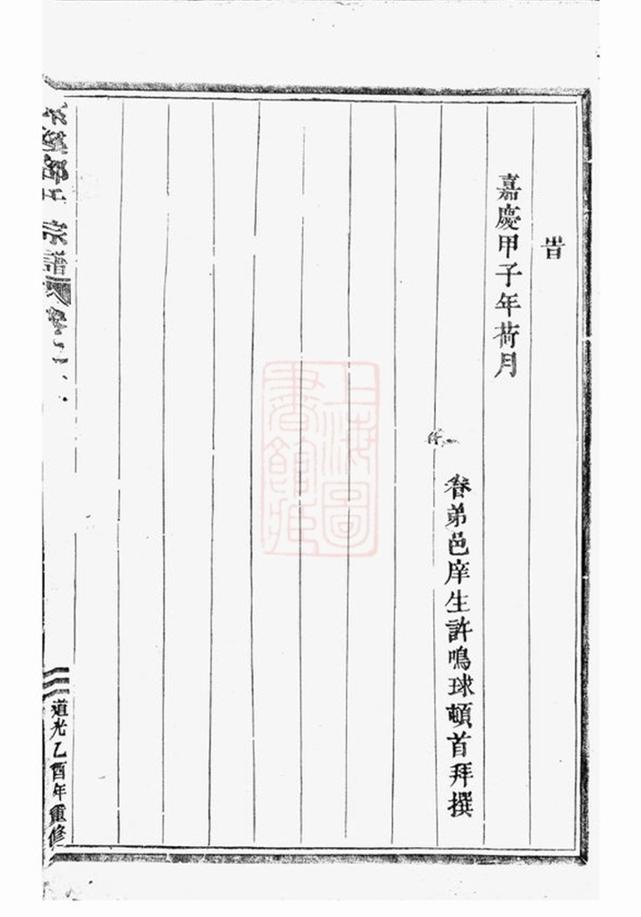 旹
嘉慶甲子年荷月
眷弟邑庠生許鳴球頓首拜撰
上海圖
書館藏
宗譜
卷之
道光乙酉年重修